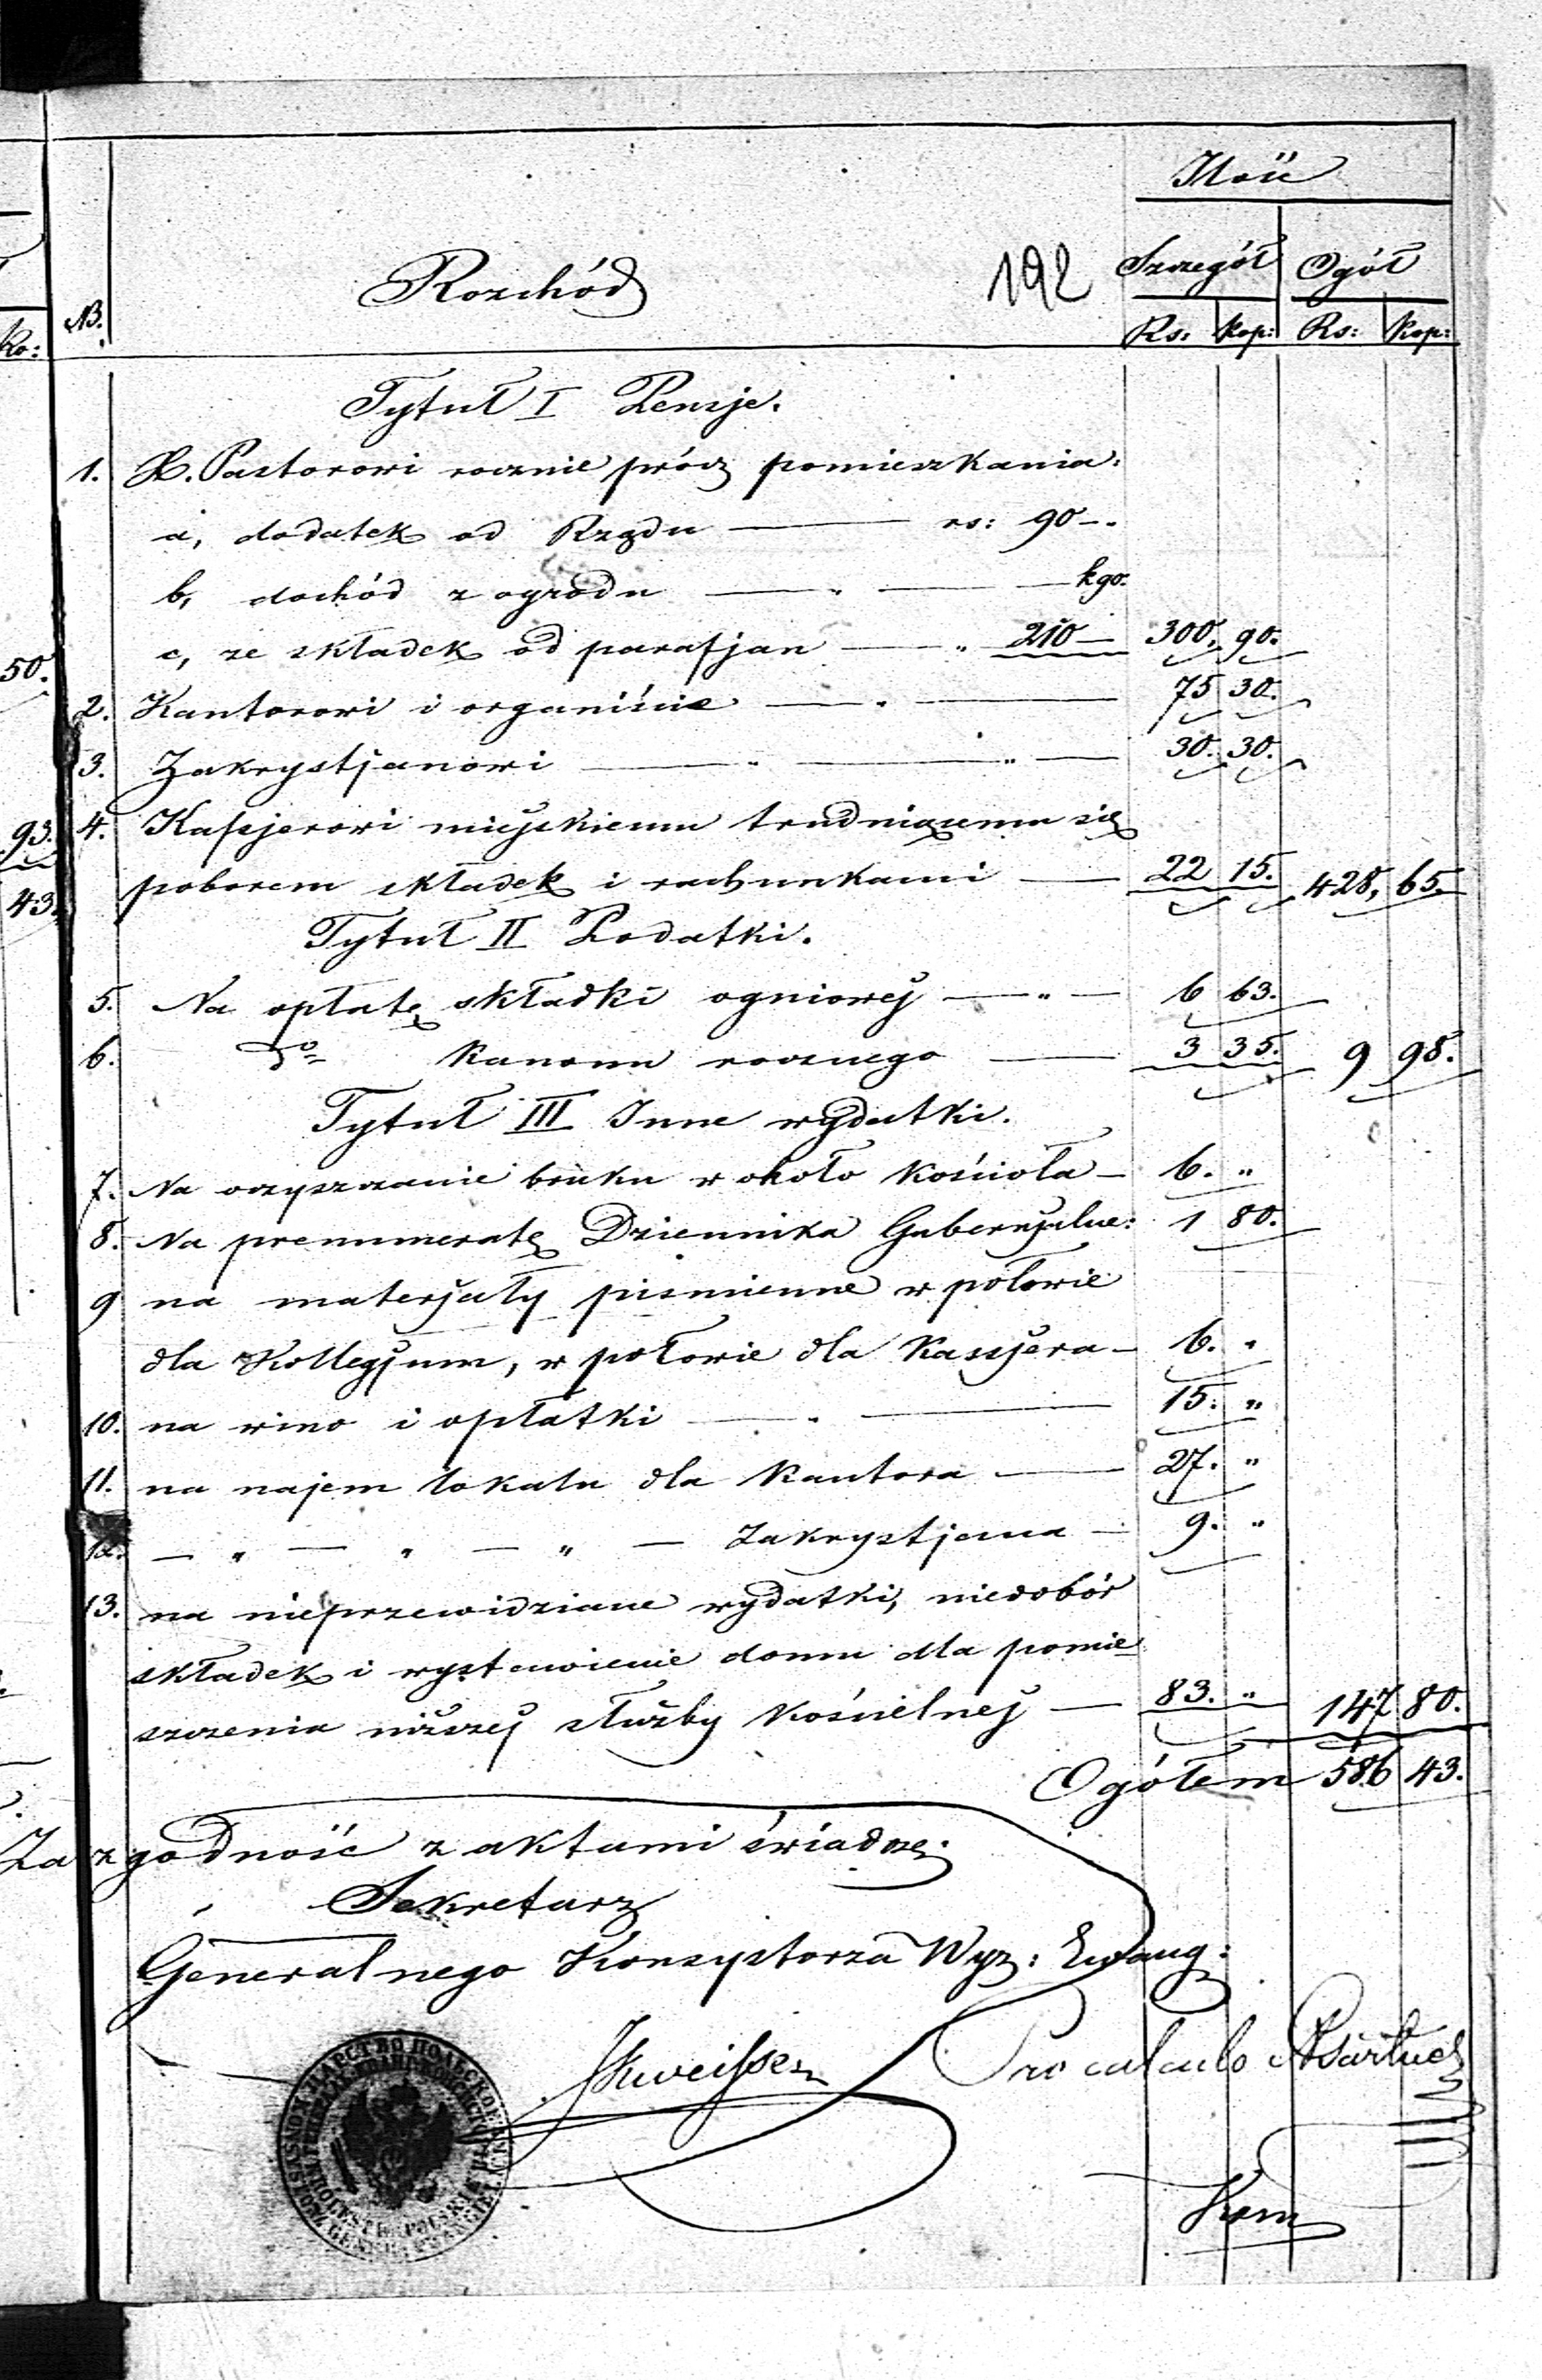 Ilość
Rozchód 192 Szczegół Ogół
No. Rs: Kop: Rs: Kop:
Ko:
Tytuł I Pensje.
1. X. Pastorowi rocznie prócz pomieszkania:
a, dodatek od Rządu — rs: 90 -.
b, dochód z ogrodu — " — kgo.
c, ze składek od parafjan — " 210 — 300. 90.
50.
2. Kantorowi i organiście — " — 75 30.
3. Zakrystjanowi — " — " — 30. 30.
93. 4. Kassjerowi miejskiemu trudniącemu się
43. poborem składek i rachunkami — 22 15. 428, 65.
Tytuł II Podatki.
5. Na opłatę składki ogniowej — " — 6 63.
6. do Kanonu rocznego — 3 35. 9 98.
Tytuł III Inne wydatki.
7. Na oczyszczanie bruku w około Kościoła — 6. "
8. Na prenumeratę Dziennika Gubernjalne: 1 80.
9 na materjały pismienne w połowie
dla Kollegjum, w połowie dla Kassjera — 6. "
10. na wino i opłatki — " — 15. "
11. na najem lokalu dla Kantora — 27. "
12. — " — " — " — Zakrystjana — 9. "
13. na nieprzewidziane wydatki, niedobór
składek i wystawienie domu dla pomie
szczenia niższej służby Kościelnej — 83. " 147 80.
Ogółem 586 43.
Za zgodność z aktami świadczę.
Sekretarz
Generalnego Konsystorza Wyz: Ewang:
Pro calculo